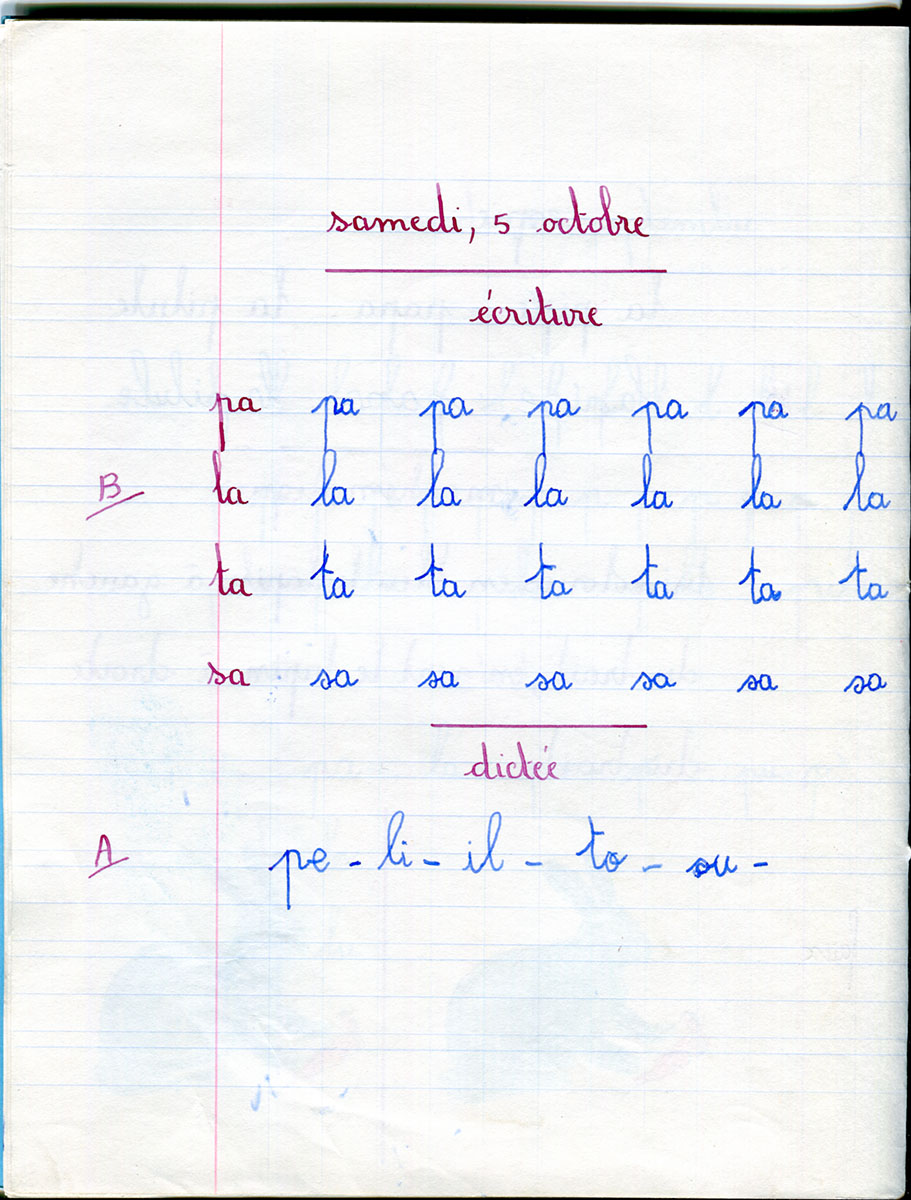 samedi, 5 octobre
écriture
pa pa pa pa pa pa pa
B la la la la la la la
ta ta ta ta ta ta ta
sa sa sa sa sa sa sa
dictée
A pe - li - il - to - ou -